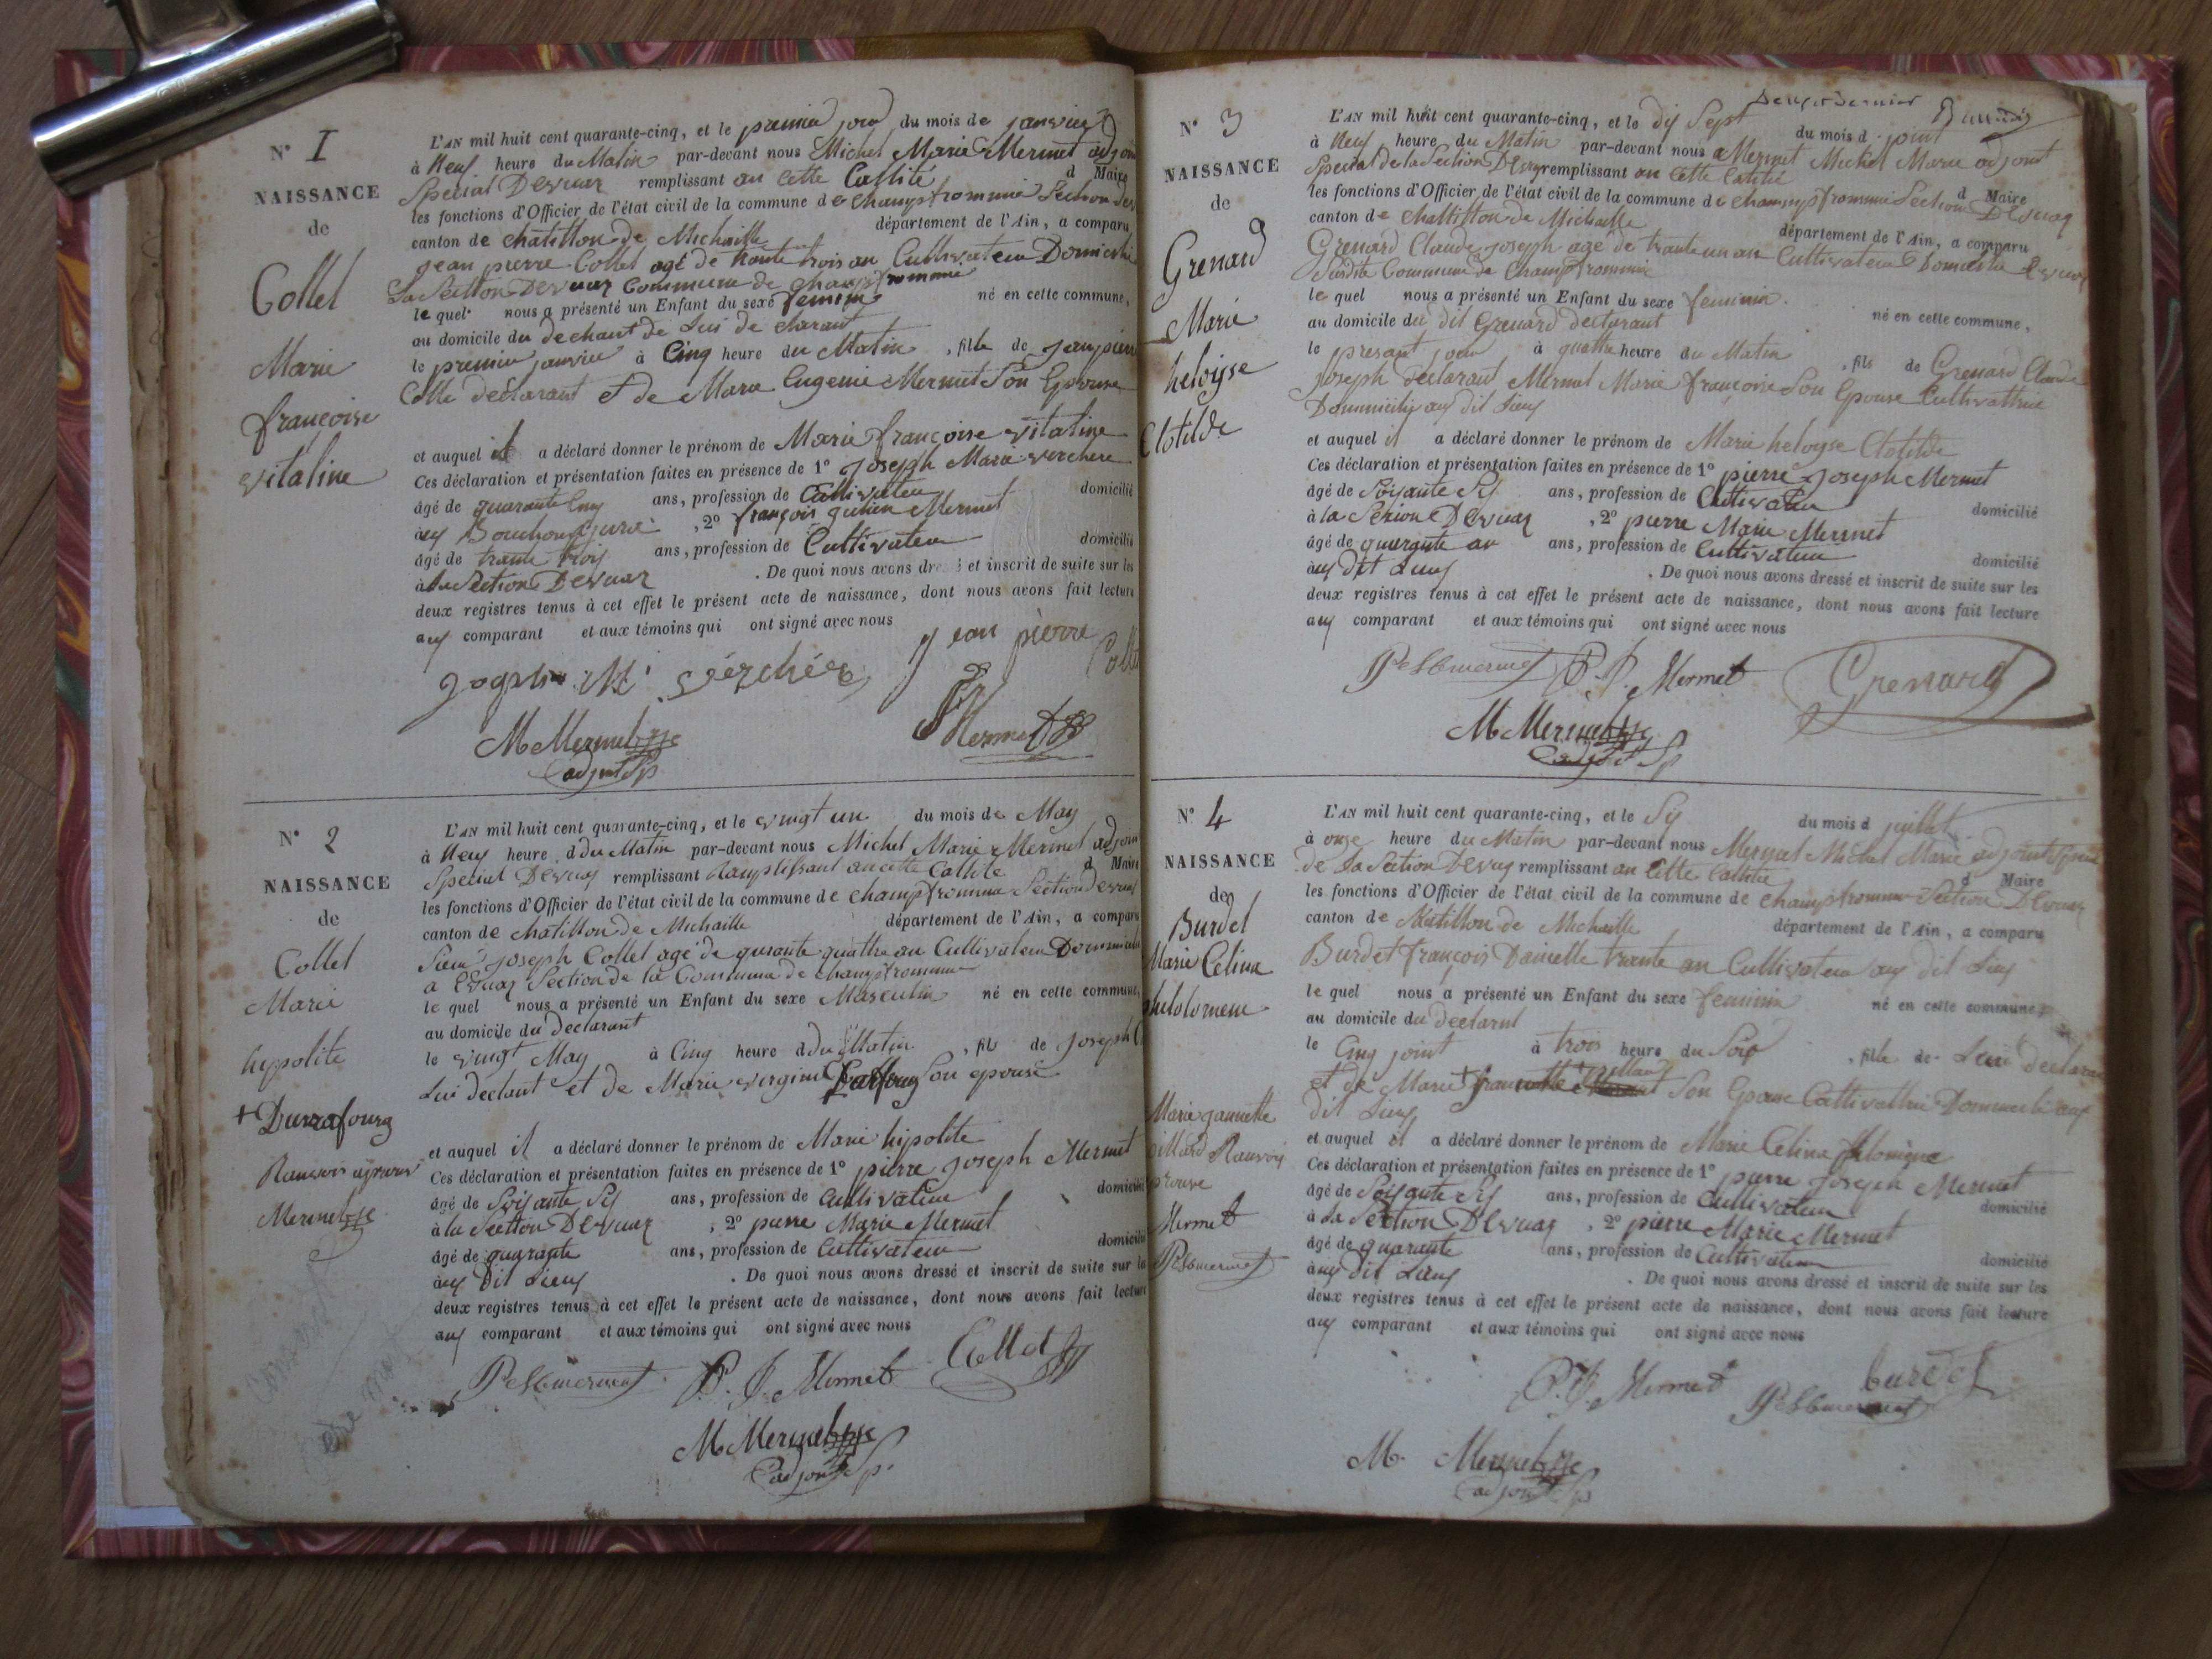 N° 1
NAISSANCE
de
Collet
Marie
françoise
vitaline
L'AN mil huit cent quarante-cinq, et le premier jour du mois de janvier
à Neuf heure du Matin par-devant nous Michel Marie Mermet adjoin
Special Devuaz remplissant an Cette Callité d Maire
les fonctions d'Officier de l'état civil de la commune de Champfrommie Section Dev
canton de Chatillon de Michaille département de l'Ain, a comparu
jean pierre Collet agé de trante trois an Cultivateur Domicilié
La Section Devuaz Commune de Champfromme
le quel nous a présenté un Enfant du sexe feminin né en cette commune,
au domicile du de Lui
le premier janvier à Cinq heure du Matin, fille de jean pierre
Collet declarant et de Marie Eugenie Mermet Son Epouse
et auquel il a déclaré donner le prénom de Marie françoise vitaline
Ces déclaration et présentation faites en présence de 1° joseph Marie verchere
âgé de quarante Cinq ans, profession de Cultivateur domicilié
aux , 2° françois julien Mermet
âgé de trante trois ans, profession de Cultivateur domicilié
à La Section Devuaz . De quoi nous avons dressé et inscrit de suite sur les
deux registres tenus à cet effet le présent acte de naissance, dont nous avons fait lecture
aux comparant et aux témoins qui ont signé avec nous
joseph M verchère jean pierre Collet
M Mermet Mermet
adjoint Sp
N° 2
NAISSANCE
de
Collet
Marie
hippolite
+ Durrafourg
Ranvois aprouvé
Mermet
L'AN mil huit cent quarante-cinq, et le vingt un du mois de May
à Neuf heure d du Matin par-devant nous Michel Marie Mermet adjoin
Special Devuaz remplissant Ramplissant an cette Callité d Maire
les fonctions d'Officier de l'état civil de la commune de Champfromme Section Devuaz
canton de Chatillon de Michaille département de l'Ain, a comparu
Sieur joseph Collet agé de quarante quattre an Cultivateur Dommicilié
a Evuaz Section de la Commune de Champfromme
le quel nous a présenté un Enfant du sexe Masculin né en cette commune,
au domicile du declarant
le vingt May à Cinq heure d du Matin, fils de joseph C
Lui declarant et de Marie virginie Son epouse
et auquel il a déclaré donner le prénom de Marie hipolite
Ces déclaration et présentation faites en présence de 1° pierre joseph Mermet
âgé de Soisante Six ans, profession de Cultivateur domicilié
à la Section Devuaz, 2° pierre Marie Mermet
âgé de quarante ans, profession de Cultivateur domicilié
aux Dit Lieux . De quoi nous avons dressé et inscrit de suite sur les
deux registres tenus à cet effet le présent acte de naissance, dont nous avons fait lecture
aux comparant et aux témoins qui ont signé avec nous
P. J. Mermet Collet
M Mermet
adjoint Sp.
N° 3
NAISSANCE
de
Grenard
Marie
heloyse
Clotilde
L'AN mil huit cent quarante-cinq, et le dix Sept du mois d joint
à Neuf heure du Matin par-devant nous Mermet Michel Marie adjoint
Special de la Section Devuaz remplissant an Cette Callité d Maire
les fonctions d'Officier de l'état civil de la commune de Champfrommie Section Devuaz
canton de Chattillon de Michaille département de l'Ain, a comparu
Grenard Claude joseph age de trante un an Cultivateur Domicilie Evuaz
Susdite Commune de Champfrommie
le quel nous a présenté un Enfant du sexe feminin. né en cette commune,
au domicile du dit Grenard declarant
le presant jour à quattre heure du Matin, fils de Grenard Claude
joseph declarant Mermet Marie françoise Son Epouse Cultivattrice
Dommicilié aux dit Lieux
et auquel il a déclaré donner le prénom de Marie heloyse Clotilde
Ces déclaration et présentation faites en présence de 1° pierre joseph Mermet
âgé de Soisante Six ans, profession de Cultivateur domicilié
à la Section Devuaz, 2° pierre Marie Mermet
âgé de quarante an ans, profession de Cultivateur domicilié
aux dit Lieux . De quoi nous avons dressé et inscrit de suite sur les
deux registres tenus à cet effet le présent acte de naissance, dont nous avons fait lecture
aux comparant et aux témoins qui ont signé avec nous
P. J. Mermet Grenard
M Mermet
adjoint Sp
N° 4
NAISSANCE
de
Burdet
Marie Celina
philolomene
Marie jannette
pillard Ranvoi
prouve
Mermet
L'AN mil huit cent quarante-cinq, et le Six du mois d juillet
à onze heure du Matin par-devant nous Mermet Michel Marie adjoint Special
de La Section Devuaz remplissant an Cette Callitée d Maire
les fonctions d'Officier de l'état civil de la commune de Champfromme Section Devuaz
canton de Chatillon de Michaille département de l'Ain, a comparu
Burdet françois Danielle trante an Cultivateur aux dit Lieu
le quel nous a présenté un Enfant du sexe feminin né en cette commune,
au domicile du declarant
le Cinq joint à trois heure du Soir, fille de Lui declarant
et de Marie + Son Epouse Cultivattrice Dommicilié aux
dit Lieux
et auquel il a déclaré donner le prénom de Marie Celina
Ces déclaration et présentation faites en présence de 1° pierre joseph Mermet
âgé de Soisante Six ans, profession de Cultivateur domicilié
à La Section Devuaz, 2° pierre Marie Mermet
âgé de quarante ans, profession de Cultivateur domicilié
aux dit Lieux . De quoi nous avons dressé et inscrit de suite sur les
deux registres tenus à cet effet le présent acte de naissance, dont nous avons fait lecture
aux comparant et aux témoins qui ont signé avec nous
P. J. Mermet burdet
M. Mermet
adjoint Sp